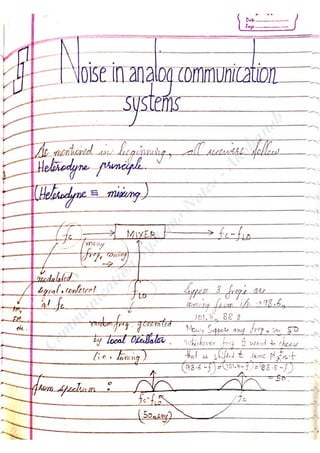 Date
Page
5
Noise in analog communication
systems
As mentioned in beginning, all receivers follow
Heterodyne principle.
(Heterodyne ≡ mixing)
fc → MIXER → fc-fLO
(many
freq. coming)
modulated
signal centered
at fc.
AM,
FM,
etc.
fLO
random freq generated
by local Oscillator.
(i.e. tuning)
Suppose 3 freq's are
coming from i/p → 98.6,
101.5, 88.3
Now, Suppose any freq. = 50
whichever freq I want to choose
that is shifted to same
= 50
from spectrum :
fc-fLO
fc
(50 say)
Communication Systems Notes